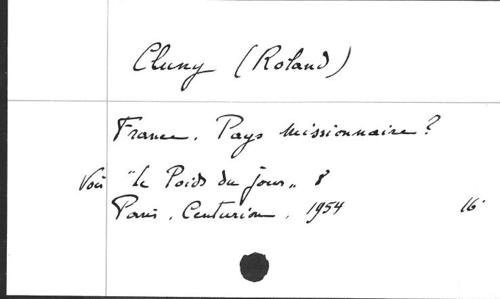 Cluny (Roland)
France. Pays missionnaire?
Voir "le Poids du jour" 8
Paris, Centurion, 1954 16°